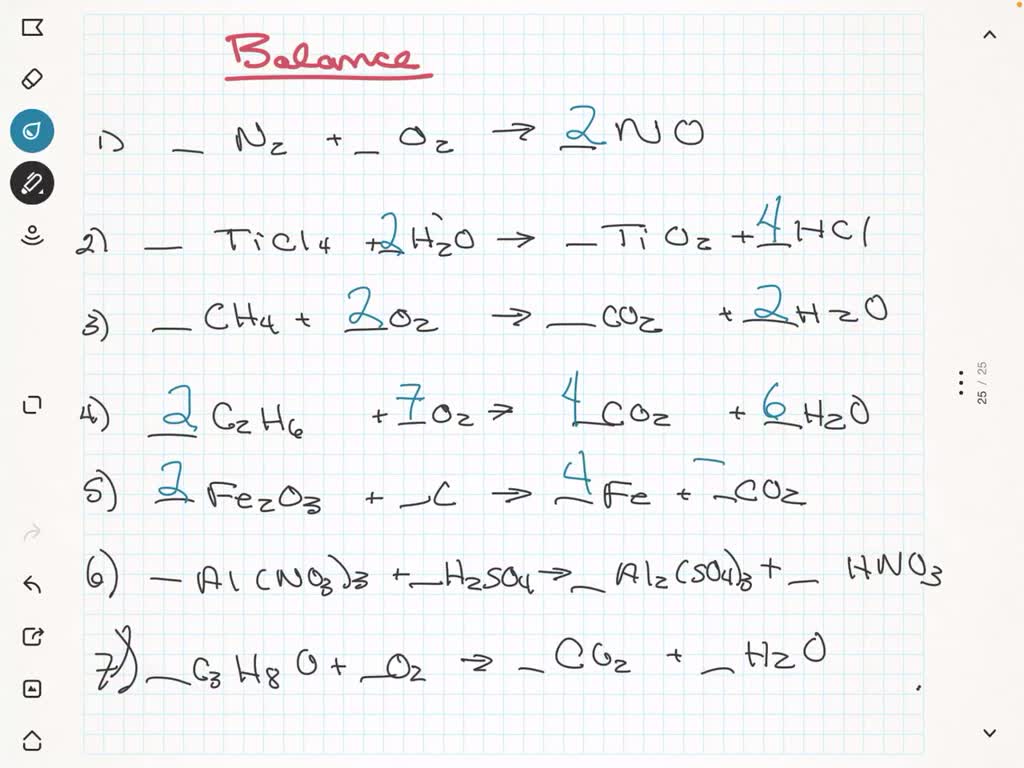 Balance
1) _ N2 + _ O2 → 2 NO
2) _ TiCl4 + 2 H2O → _ TiO2 + 4 HCl
3) _ CH4 + 2 O2 → _ CO2 + 2 H2O
4) 2 C2H6 + 7 O2 → 4 CO2 + 6 H2O
5) 2 Fe2O3 + _ C → 4 Fe + _ CO2
6) _ Al(NO3)3 + _ H2SO4 → _ Al2(SO4)3 + _ HNO3
7) _ C3H8O + _ O2 → _ CO2 + _ H2O
25 / 25